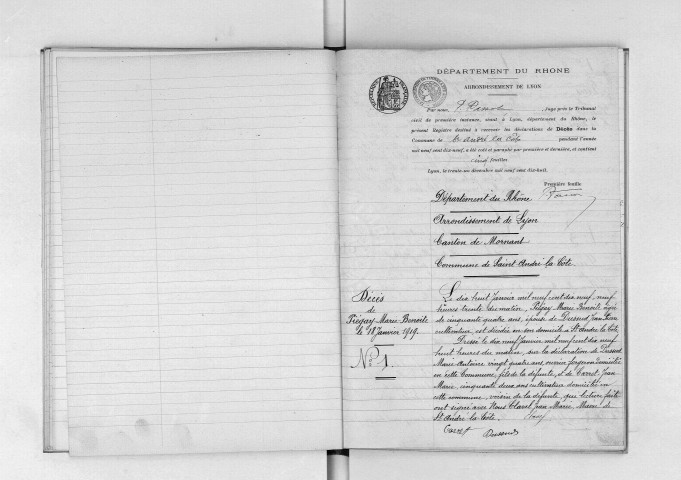 DÉPARTEMENT DU RHÔNE
ARRONDISSEMENT DE LYON
Par nous, Juge près le Tribunal
civil de première instance, séant à Lyon, département du Rhône, le
présent Registre destiné à recevoir les déclarations de Décès dans la
Commune de St André la Côte pendant l'année
mil neuf cent dix-neuf, a été coté et paraphé par première et dernière, et contient
cinq feuilles
Lyon, le trente-un décembre mil neuf cent dix-huit.
Première feuille
Département du Rhône
Arrondissement de Lyon
Canton de Mornant
Commune de Saint André la Côte
Décès
de
Marie Benoite
le 18 Janvier 1919.
N° 1.
Le dix huit Janvier mil neuf cent dix neuf, neuf
heures trente du matin, Marie Benoite agée
de cinquante quatre ans, épouse de Jean
cultivateur, est décédée en son domicile à St André la Côte.
Dressé le dix neuf Janvier mil neuf cent dix neuf
huit heures du matin, sur la déclaration de
Marie Antoine vingt quatre ans, domicilié
en cette Commune, fils de la défunte, et de Jean
Marie, cinquante deux ans cultivateur domicilié en
cette commune, voisin de la défunte, qui lecture faite
ont signé avec Nous Clavel Jean Marie, Maire de
St André la Côte.